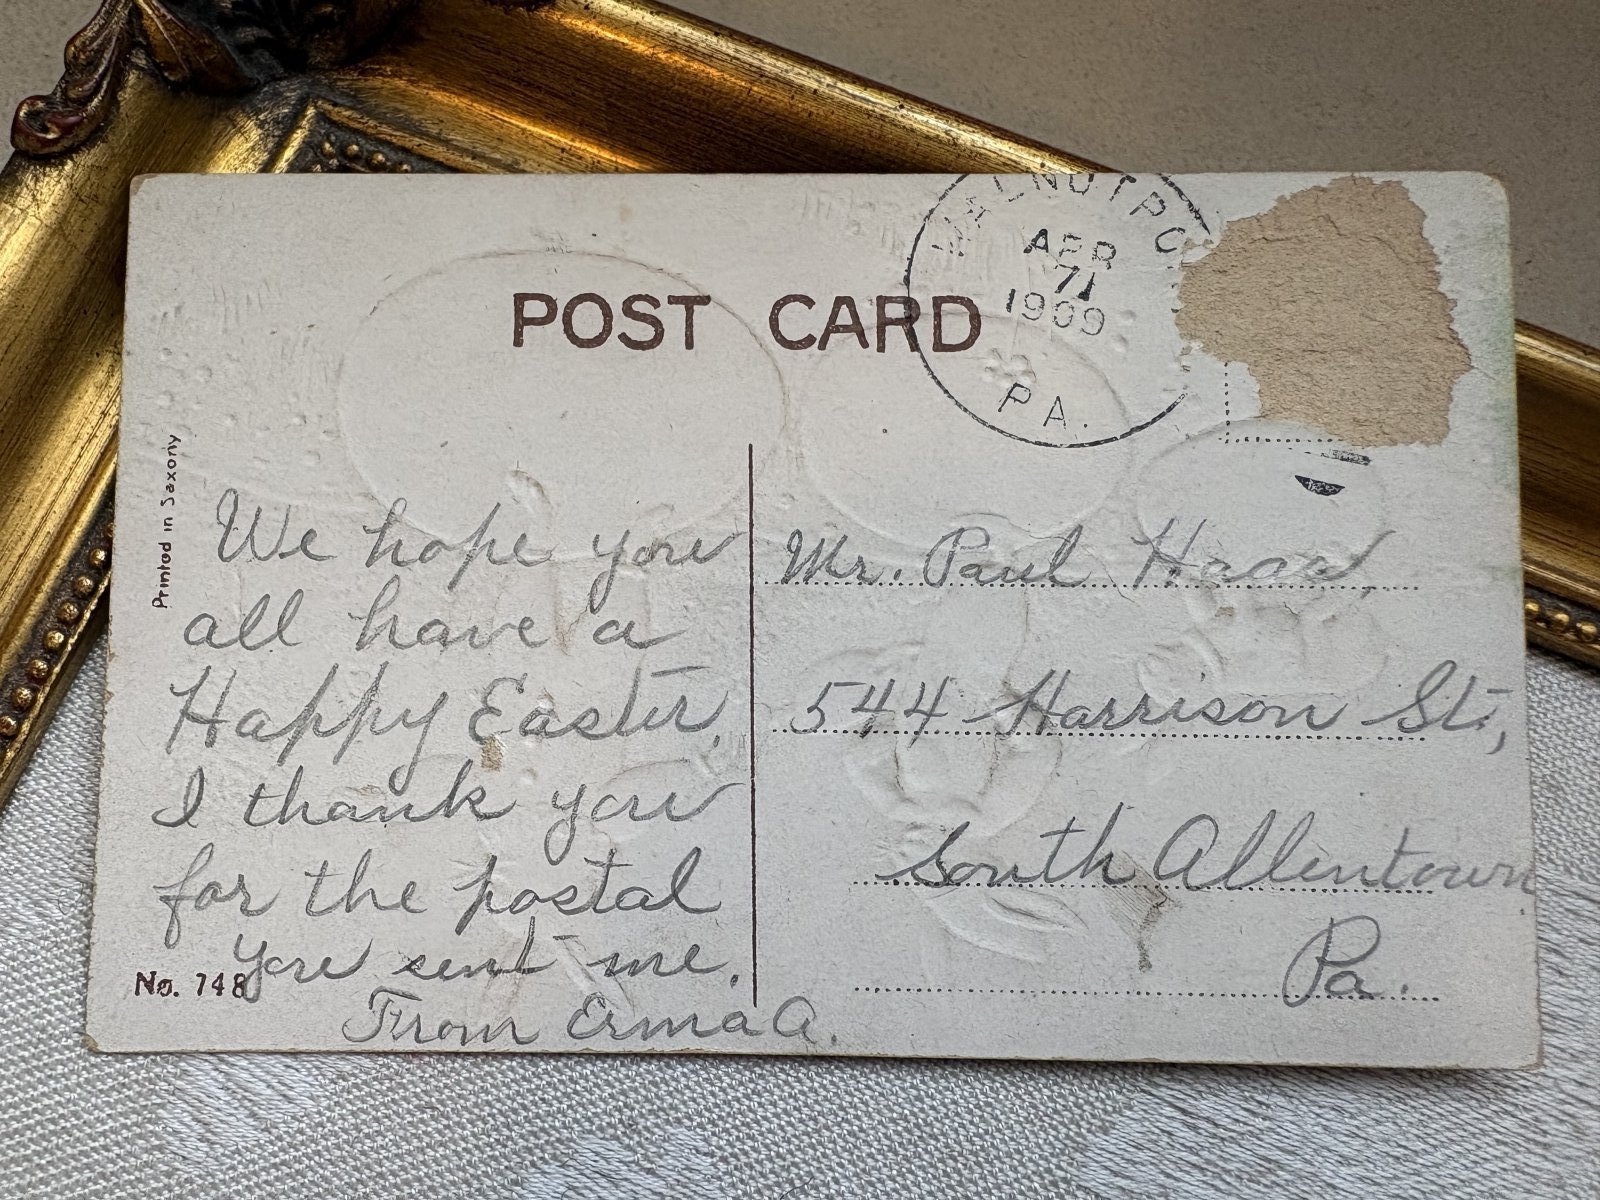 WALNUTPO
APR
71
1909
PA.
POST CARD
Printed in Saxony
We hope you
all have a
Happy Easter,
I thank you
for the postal
you sent me.
From Erma A.
No. 748
Mr. Paul
544 Harrison St.,
South Allentown
Pa.